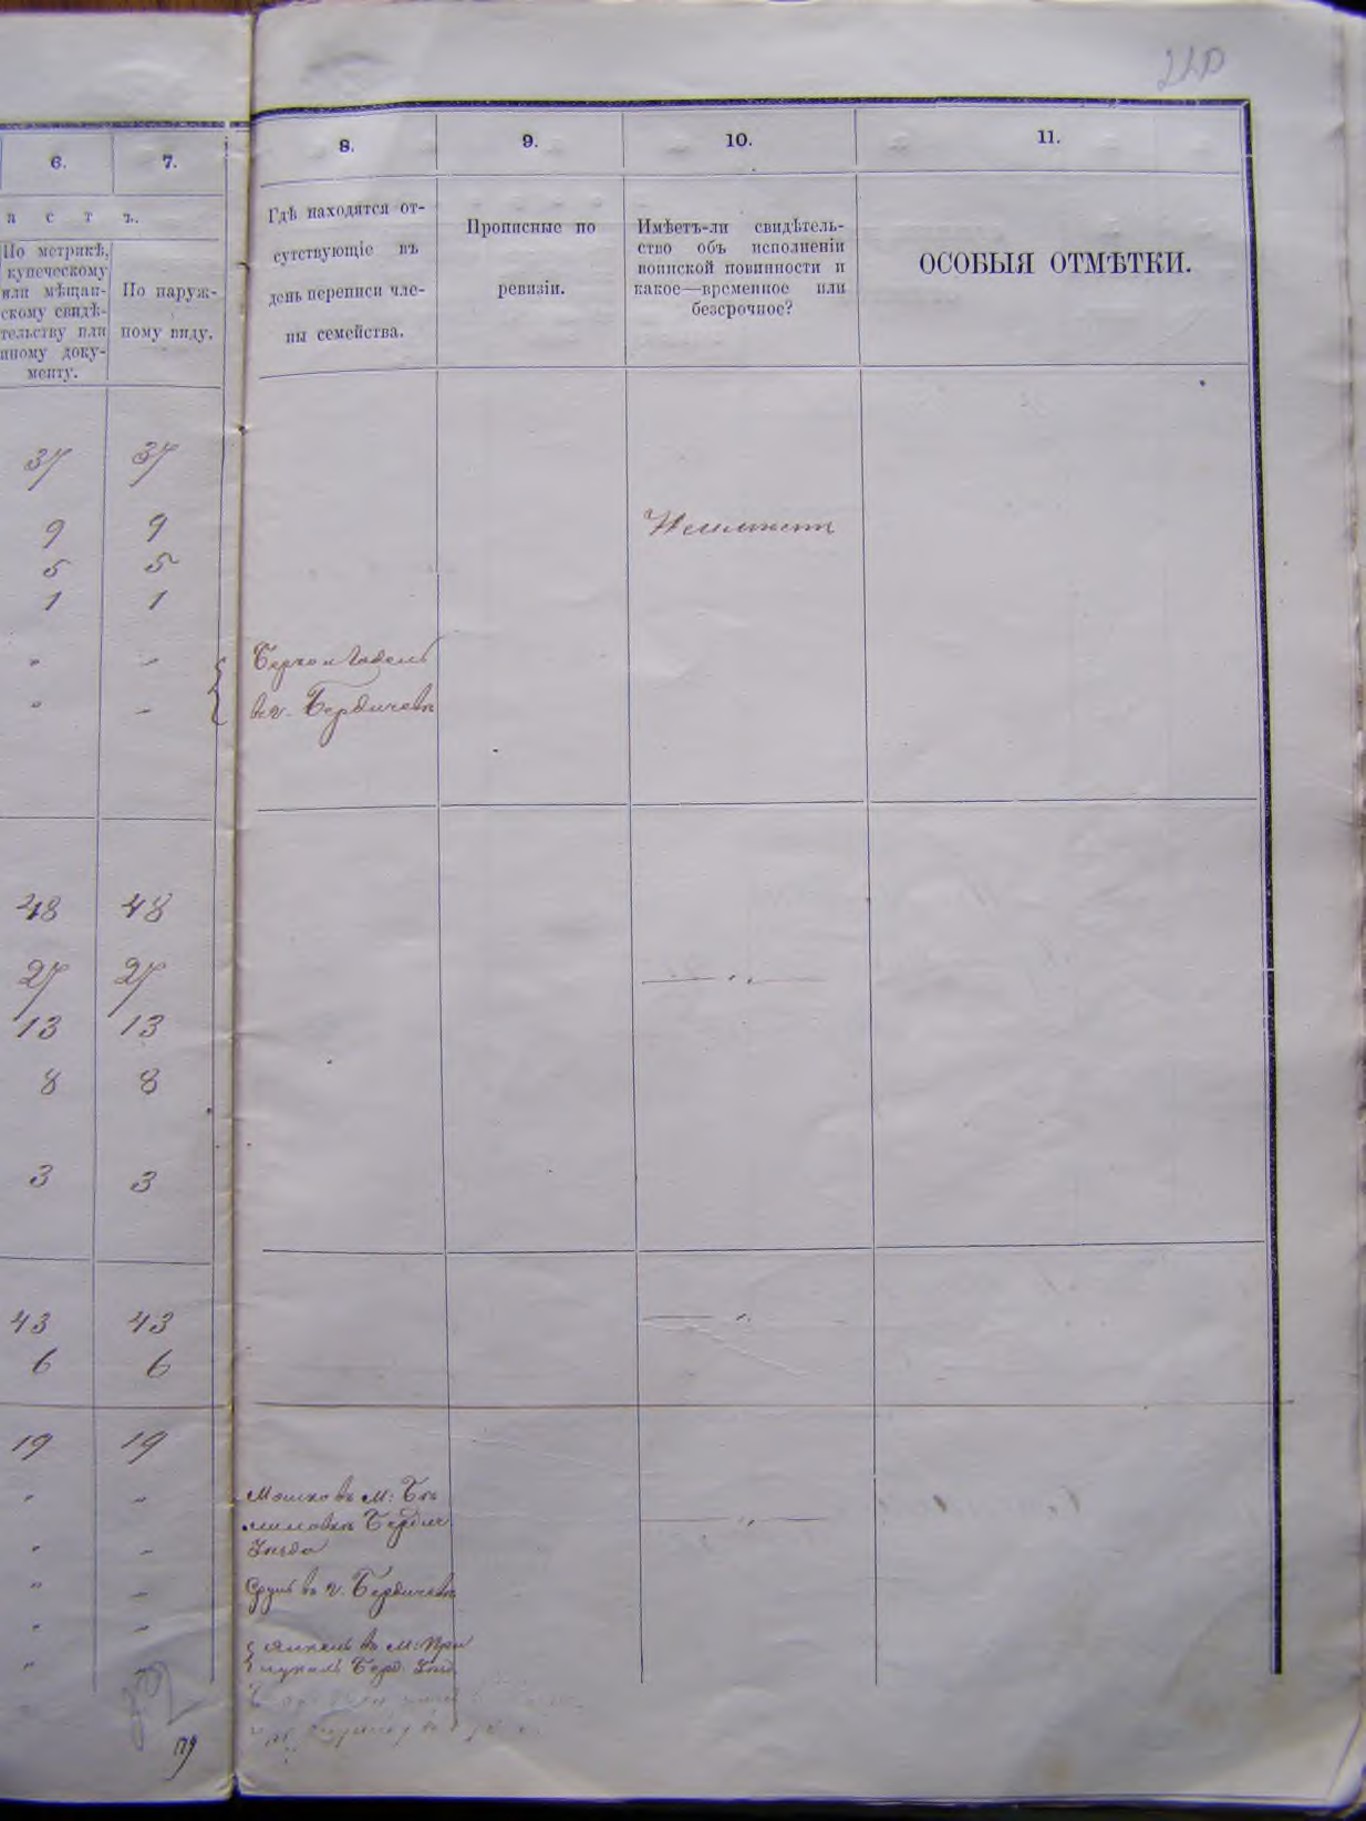 220
6.
7.
8.
9.
10.
11.
а с т ъ.
По метрикѣ,
купеческому
или мѣщан-
скому свидѣ-
тельству или
иному доку-
менту.
По наруж-
ному виду.
Гдѣ находятся от-
сутствующіе въ
день переписи чле-
ны семейства.
Прописные по
ревизіи.
Имѣетъ-ли свидѣтель-
ство объ исполненіи
воинской повинности и
какое—временное или
безсрочное?
ОСОБЫЯ ОТМѢТКИ.
37 37
9 9
5 5
1 1
" —
" —
Берко и
въ г. Бердичевѣ
48 48
27 27 — " —
13 13
8 8
3 3
43 43 — "
6 6
19 19
" — Мошко въ м:
Бердич — " —
" — Уѣзда
" — Сруль въ г. Бердичевѣ
" — Янкель въ м: При
" — Берд. Уѣзд
179